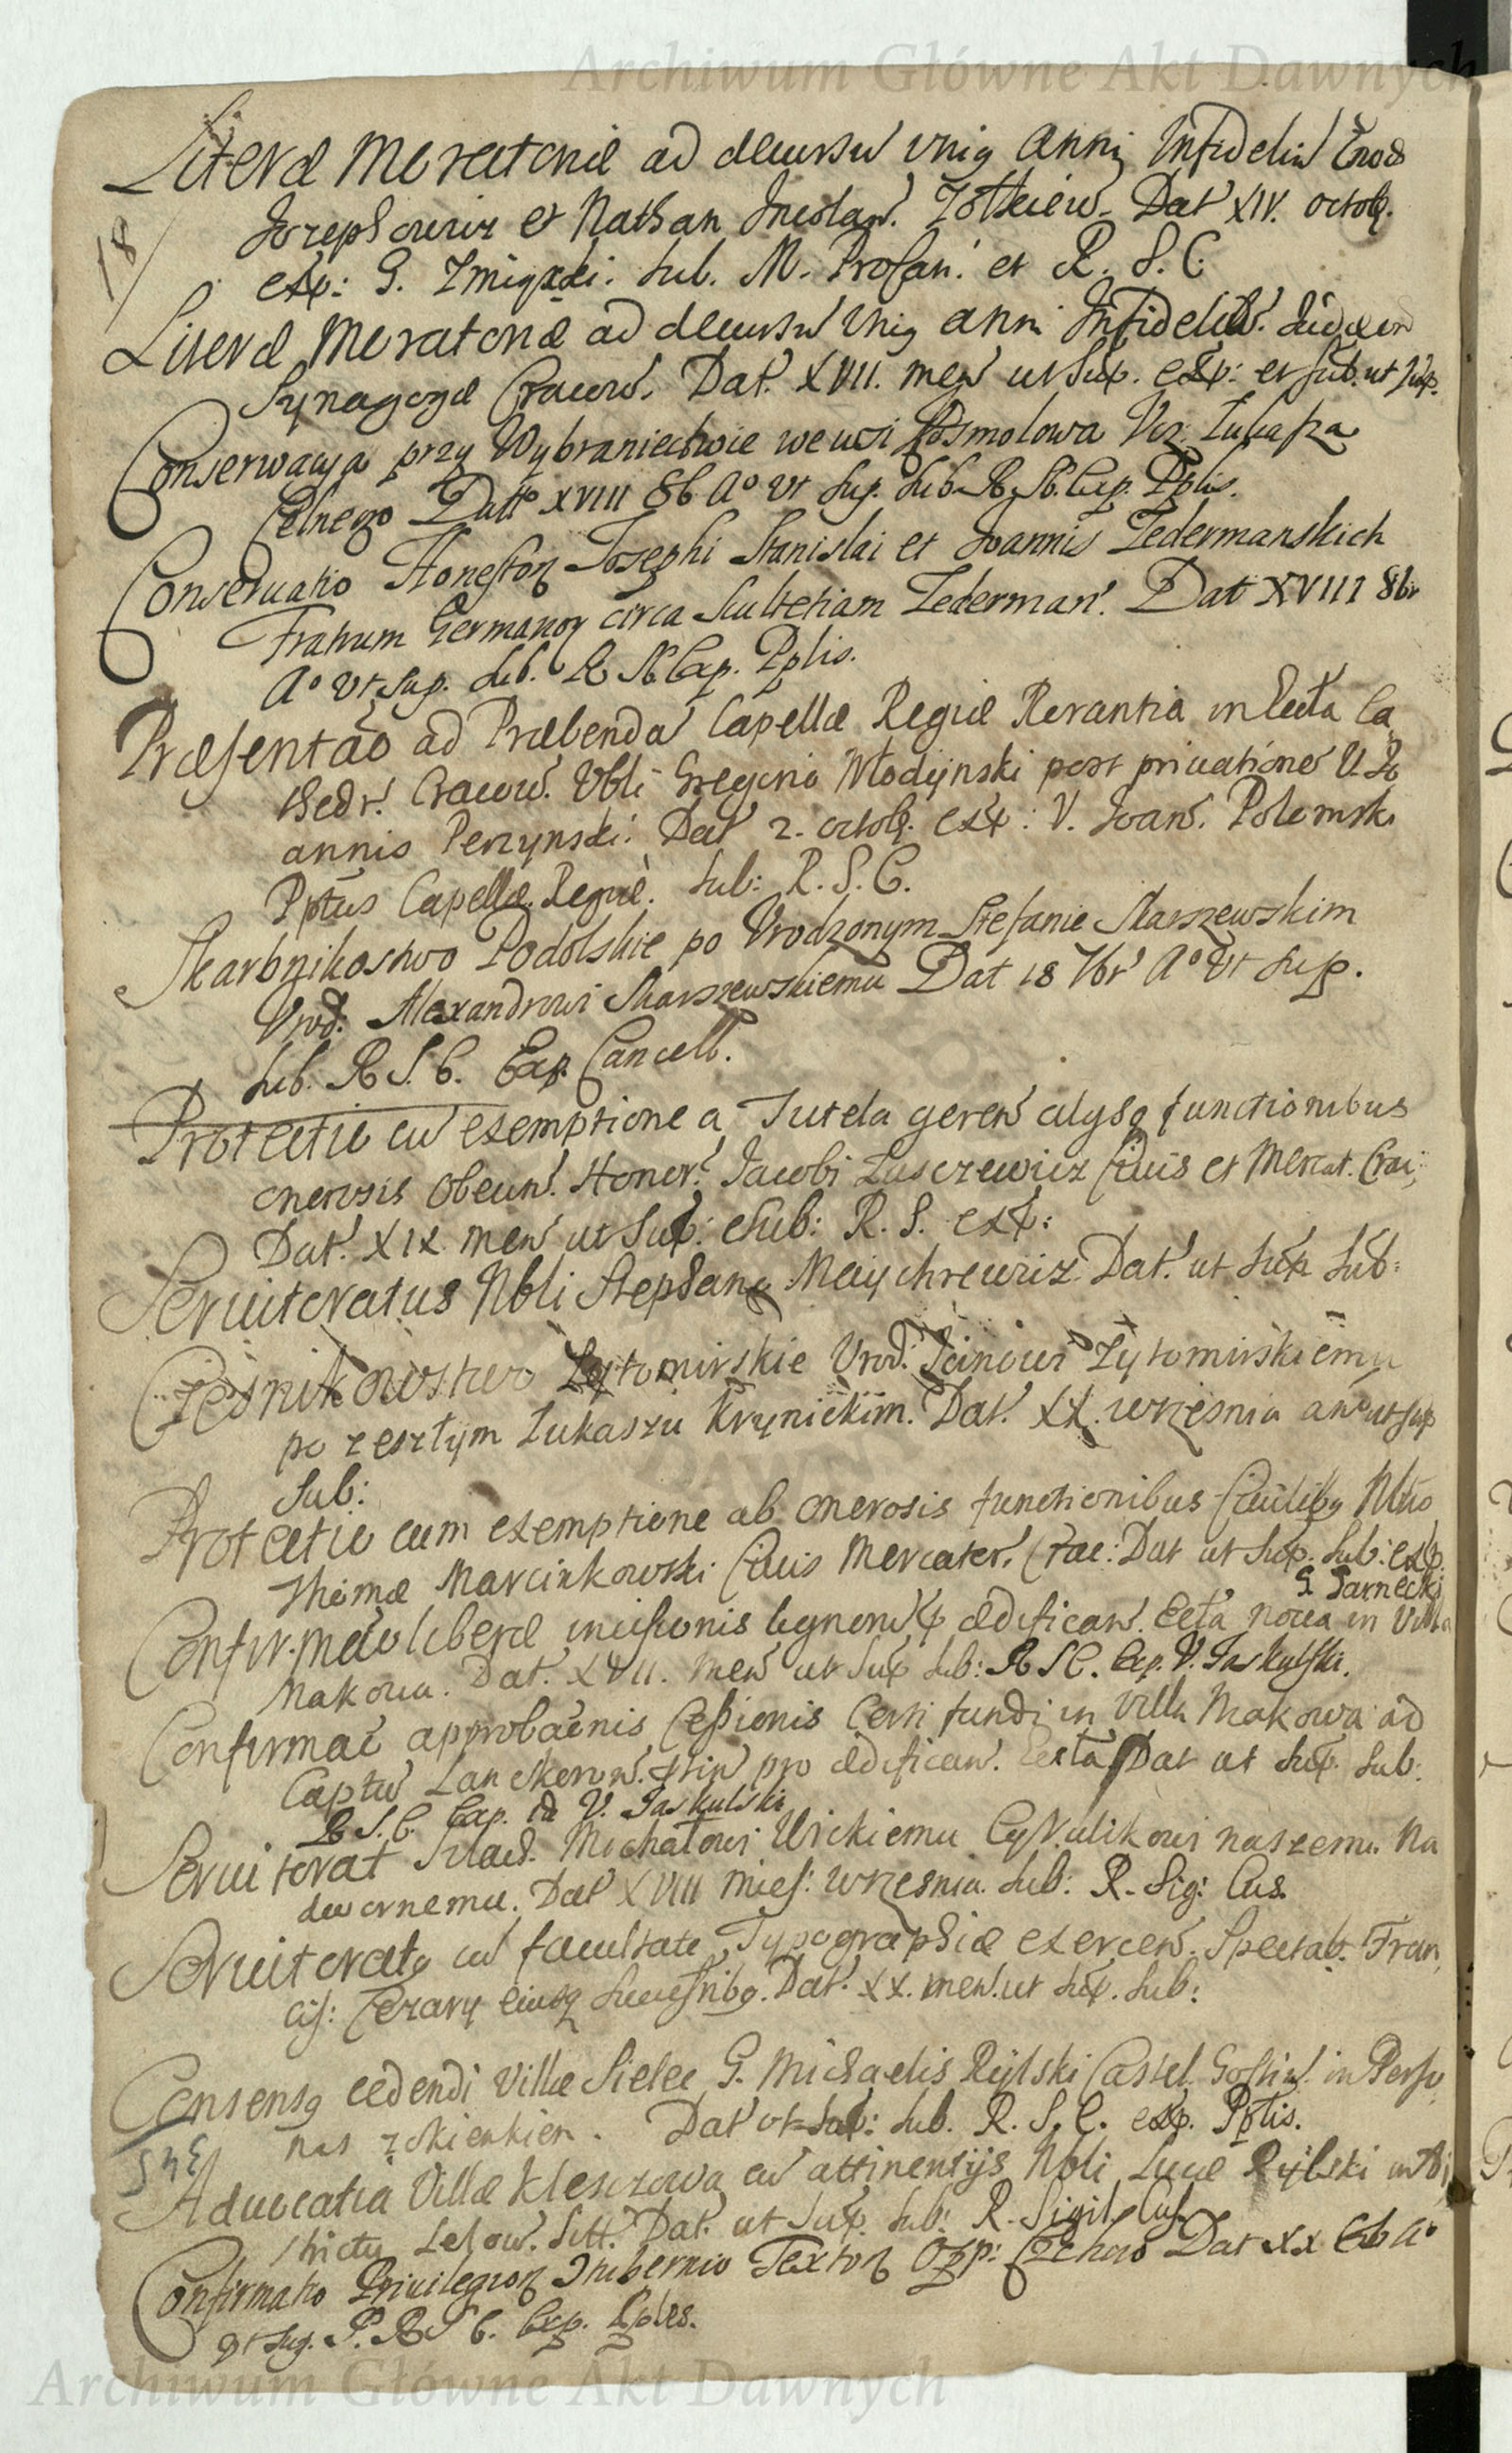 Archiwum Główne Akt Dawnych
Literæ Moratoriæ ad decursū unig anni Infidelin̄ Enoch
18
Jozephowicz et Nathan Incolar. Zolkiew. Dat XIV. octobr.
exp: G. Zmigrzki. sub. M. Profan. et R. S. C.
Literæ Moratoriæ ad decursū unig anni Infideliū. Judæor
Synagogæ Cracow. Dat. XVII. men ut sup. exp: et sub. ut sup.
Conserwacya przy Wybraniectwie we wsi Posmolowa Ur. Lukasza
Celnego Datt XVIII 8b. Aº Ut sup. sub. R. S. C. Exp. Pplis.
Conservatio Honestor Josephi Stanislai et Joannis Ledermanskich
Fratrum Germanor circa Scultetiam Lederman. Dat XVIII 8br
Aº Ut sup. sub. R S C Exp. Pplis.
Præsentaō ad Præbendā Capellæ Regiæ Rorantia in Eccta Ca
thedr. Cracow. Vbli Gregorio Włodynski post privationē V. Jo
annis Perzynski. Dat 2. octobr. exp: V. Joan. Polomsk.
Pptus Capellæ Regiæ. sub: R. S. C.
Skarbnikostwo Podolskie po Urodzonym Stefanie Skarszewskim
Urod. Alexandrowi Skarszewskiemu Dat 18 7br Aº Ut sup.
sub. R S. C. Exp. Cancell.
Protectio cū exemptione a Tutela geren alysq functionibus
onerosis obeun. Honor. Jacobi Zasczewicz Civis et Mercat. Crac:
Dat. XIX men ut sup: sub: R. S. exp:
Servitoratus Nbli Stephano Maychrewicz Dat. ut sup sub:
Czesnikowstwo Zytomirskie Urod: Janowi Zytomirskiemu
po zeszłym Łukaszu Krynickim. Dat. XX. wrzesnia anº ut sup
Sub:
Protectio cum exemptione ab onerosis functionibus Civilibg Nbło
Thomæ Marcinkowski Civis Mercator. Crac: Dat ut sup. sub: exp.
G. Sarnecki
Confir.maō liberæ incisionis lignorū ædifican. Eccta nova in Villa
Makowa. Dat. XVII. men ut sup sub: R S C. Exp. V. Jaskulski.
Confirmaē approbaēnis Cessionis Certi fundi in Villa Makowa ad
Captū Lanckoron. stin pro ædifican. Eccta Dat ut sup. sub:
R S. C. Exp. id V. Jaskulski
Servitorat Szlach. Michałowi Urickiemu Cyrulikowi naszemu Na
dwornemu. Dat XVIII mies: wrzesnia. sub: R. Sig: Cus.
Servitoratg cū facultate Typographiæ exercen. Spectab. Fran
cis: Cezary eiusq successribg. Dat. XX. men. ut sup. sub:
Consensg cedendi Villæ Sielec G. Michaelis Rylski Castel. Gostin. in Perso
nas Dat ut sup: sub. R. S. C. exp. Pptis.
Advocatia Villæ Kleszczowa cū attinentijs Nbli Lucæ Rylski in Di
strictu Lelow. Sitt. Dat. ut sup. sub: R. Sigil. Cus.
Confirmatio Privilegior Contubernio Textor Opp: Czchow Dat XX 8b Aº
Ut sup. S. R S C. Exp. Pplis.
Archiwum Główne Akt Dawnych